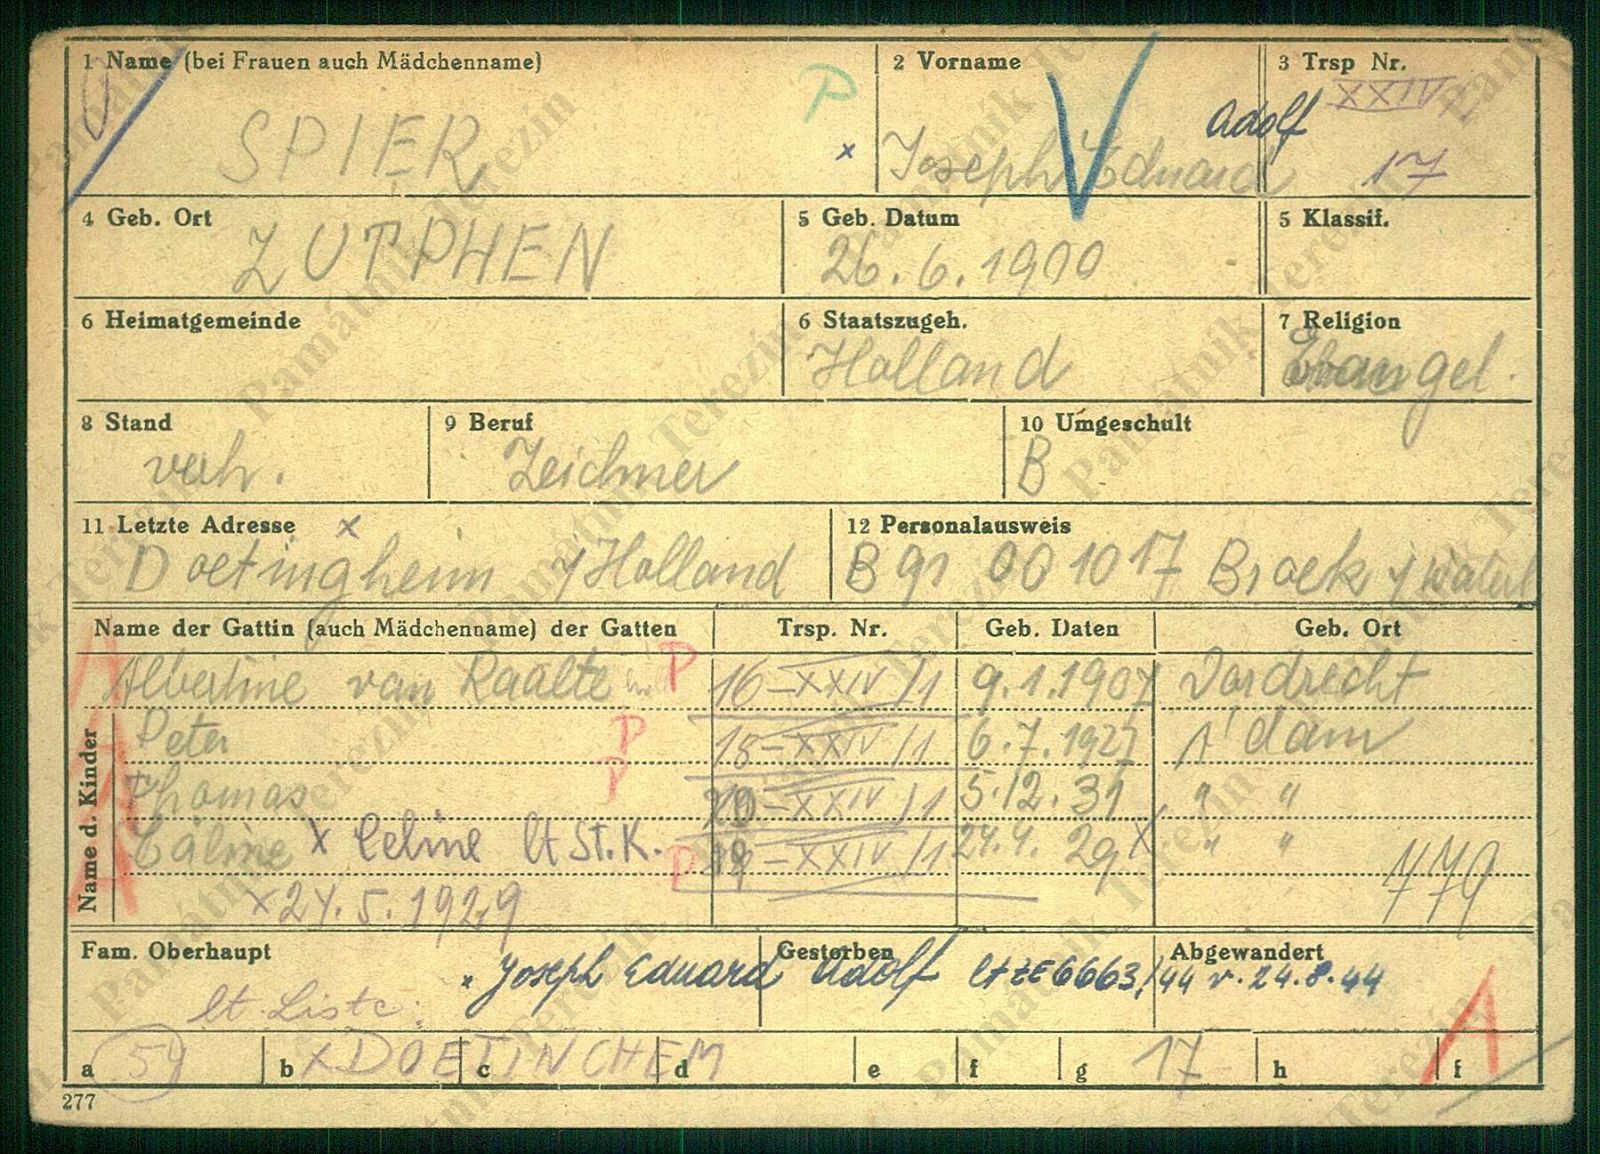 1 Name (bei Frauen auch Mädchenname)
P
2 Vorname
V
3 Trsp Nr.
XXIV/1
SPIER
x Joseph Eduard
Adolf
17
4 Geb. Ort
5 Geb. Datum
5 Klassif.
ZUTPHEN
26. 6. 1900
6 Heimatgemeinde
6 Staatszugeh.
7 Religion
Holland
Evangel.
8 Stand
9 Beruf
10 Umgeschult
verh.
Zeichner
B
11 Letzte Adresse x
12 Personalausweis
Doetingheim / Holland
B 91 00 10 17 Broek / Waterl
Name der Gattin (auch Mädchenname) der Gatten
Trsp. Nr.
Geb. Daten
Geb. Ort
Albertine van Raalte P 16-XXIV/1 9.1.1907 Dordrecht
Name d. Kinder
Peter P 18-XXIV/1 6.7.1927 A'dam
Thomas P 20-XXIV/1 5.12.31 " "
Céline x Celine lt St. K. P 19-XXIV/1 24.4.29 x " "
x 24. 5. 1929
779
Fam. Oberhaupt
Gestorben
Abgewandert
x Joseph Eduard Adolf lt ZE 6663/44 v. 24.8.44
lt. Liste:
A
a 54 b x DOETINCHEM c d e f g 17 h f
277
Památník Terezín